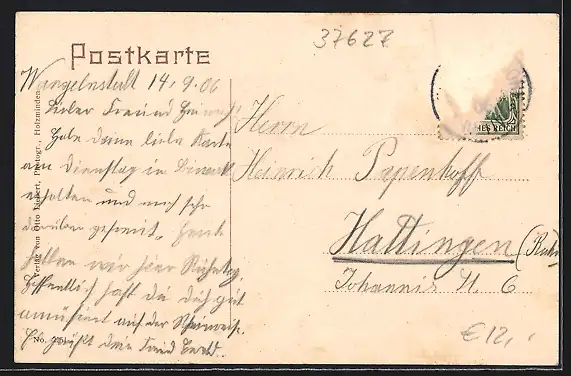 37627
Postkarte
Wangelnstedt 14.9.06
Lieber Freund Heinrich
Habe deine liebe Karte
am Dienstag in
erhalten und mich sehr
darüber gefreut. Heute
hatten wir hier Ruhetag
Hoffentlich hast du dich gut
amüsiert auf der
Es grüßt dein Freund Ewald.
Verlag von Otto Liebert, Photogr., Holzminden.
No.
Herrn
Heinrich Papenhoff
Hattingen (Ruhr
Johannis St. 6
HES REICH
€12,-